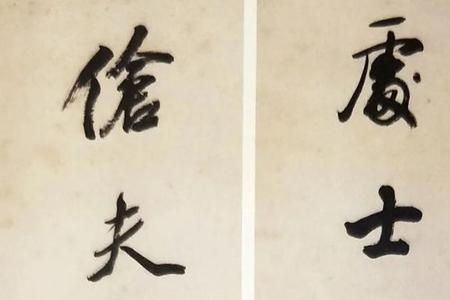 處士
傖夫